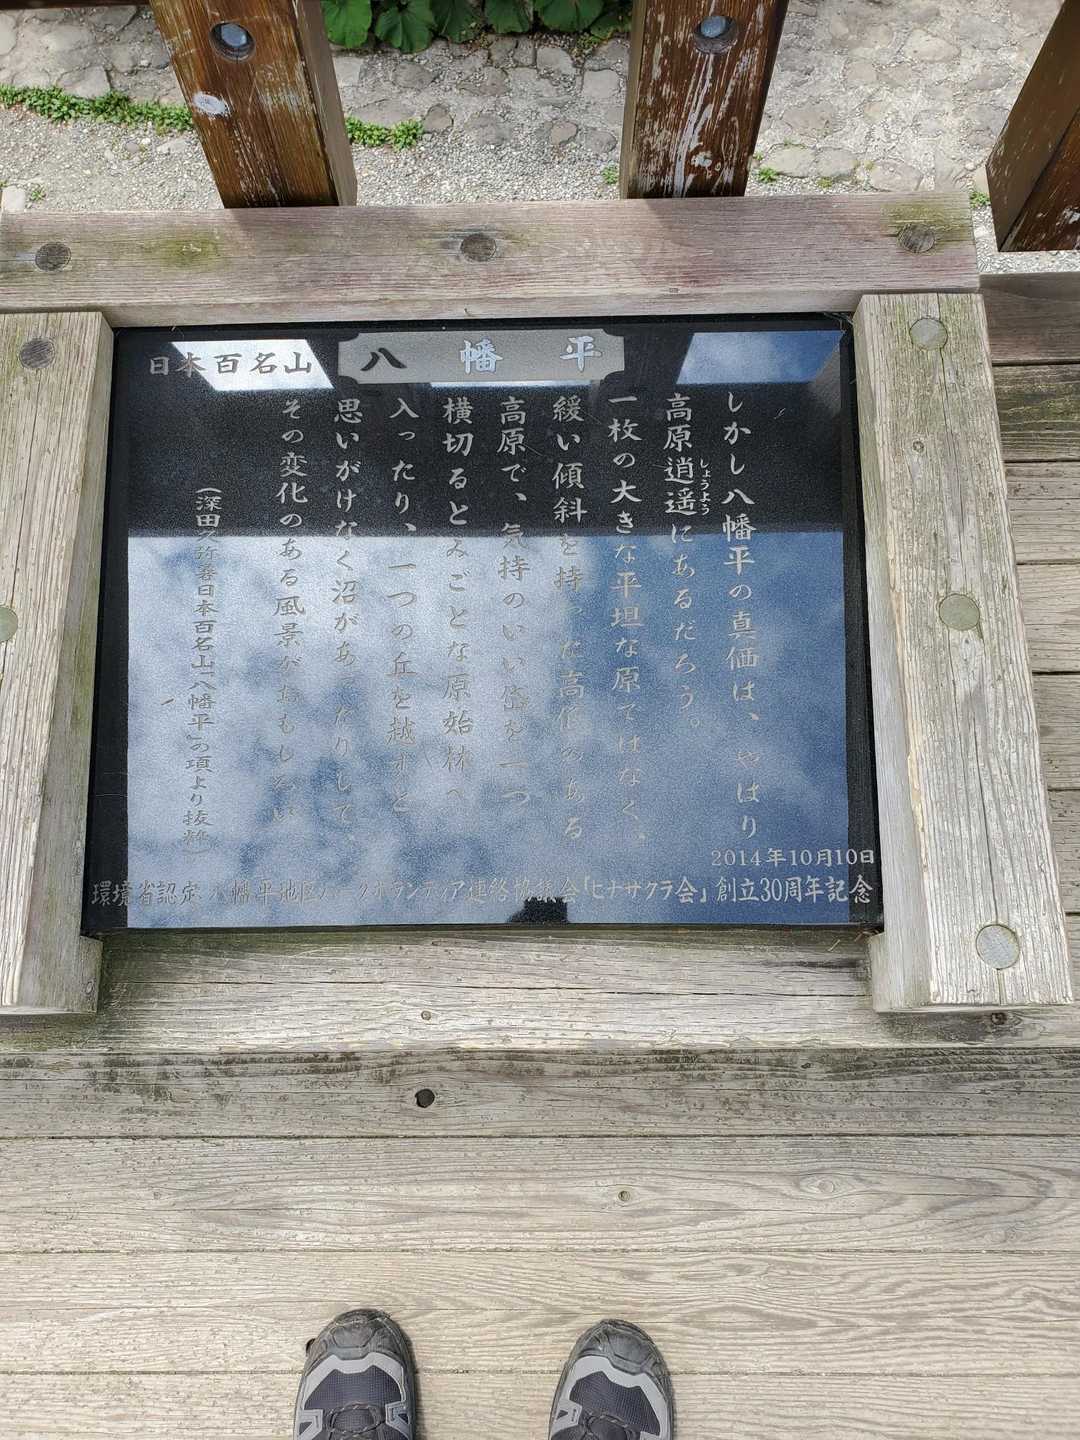 日本百名山 八幡平
しかし八幡平の真価は、やはり
高原逍遥にあるだろう。
しょうよう
一枚の大きな平坦な原ではなく、
緩い傾斜を持った高低のある
高原で、気持のいい岱を一つ
横切るとみごとな原始林へ
入ったり、一つの丘を越すと
思いがけなく沼があったりして、
その変化のある風景がおもしろい
(深田久弥著日本百名山「八幡平」の項より抜粋)
2014年10月10日
環境省認定 八幡平地区パークボランティア連絡協議会「ヒナザクラ会」創立30周年記念